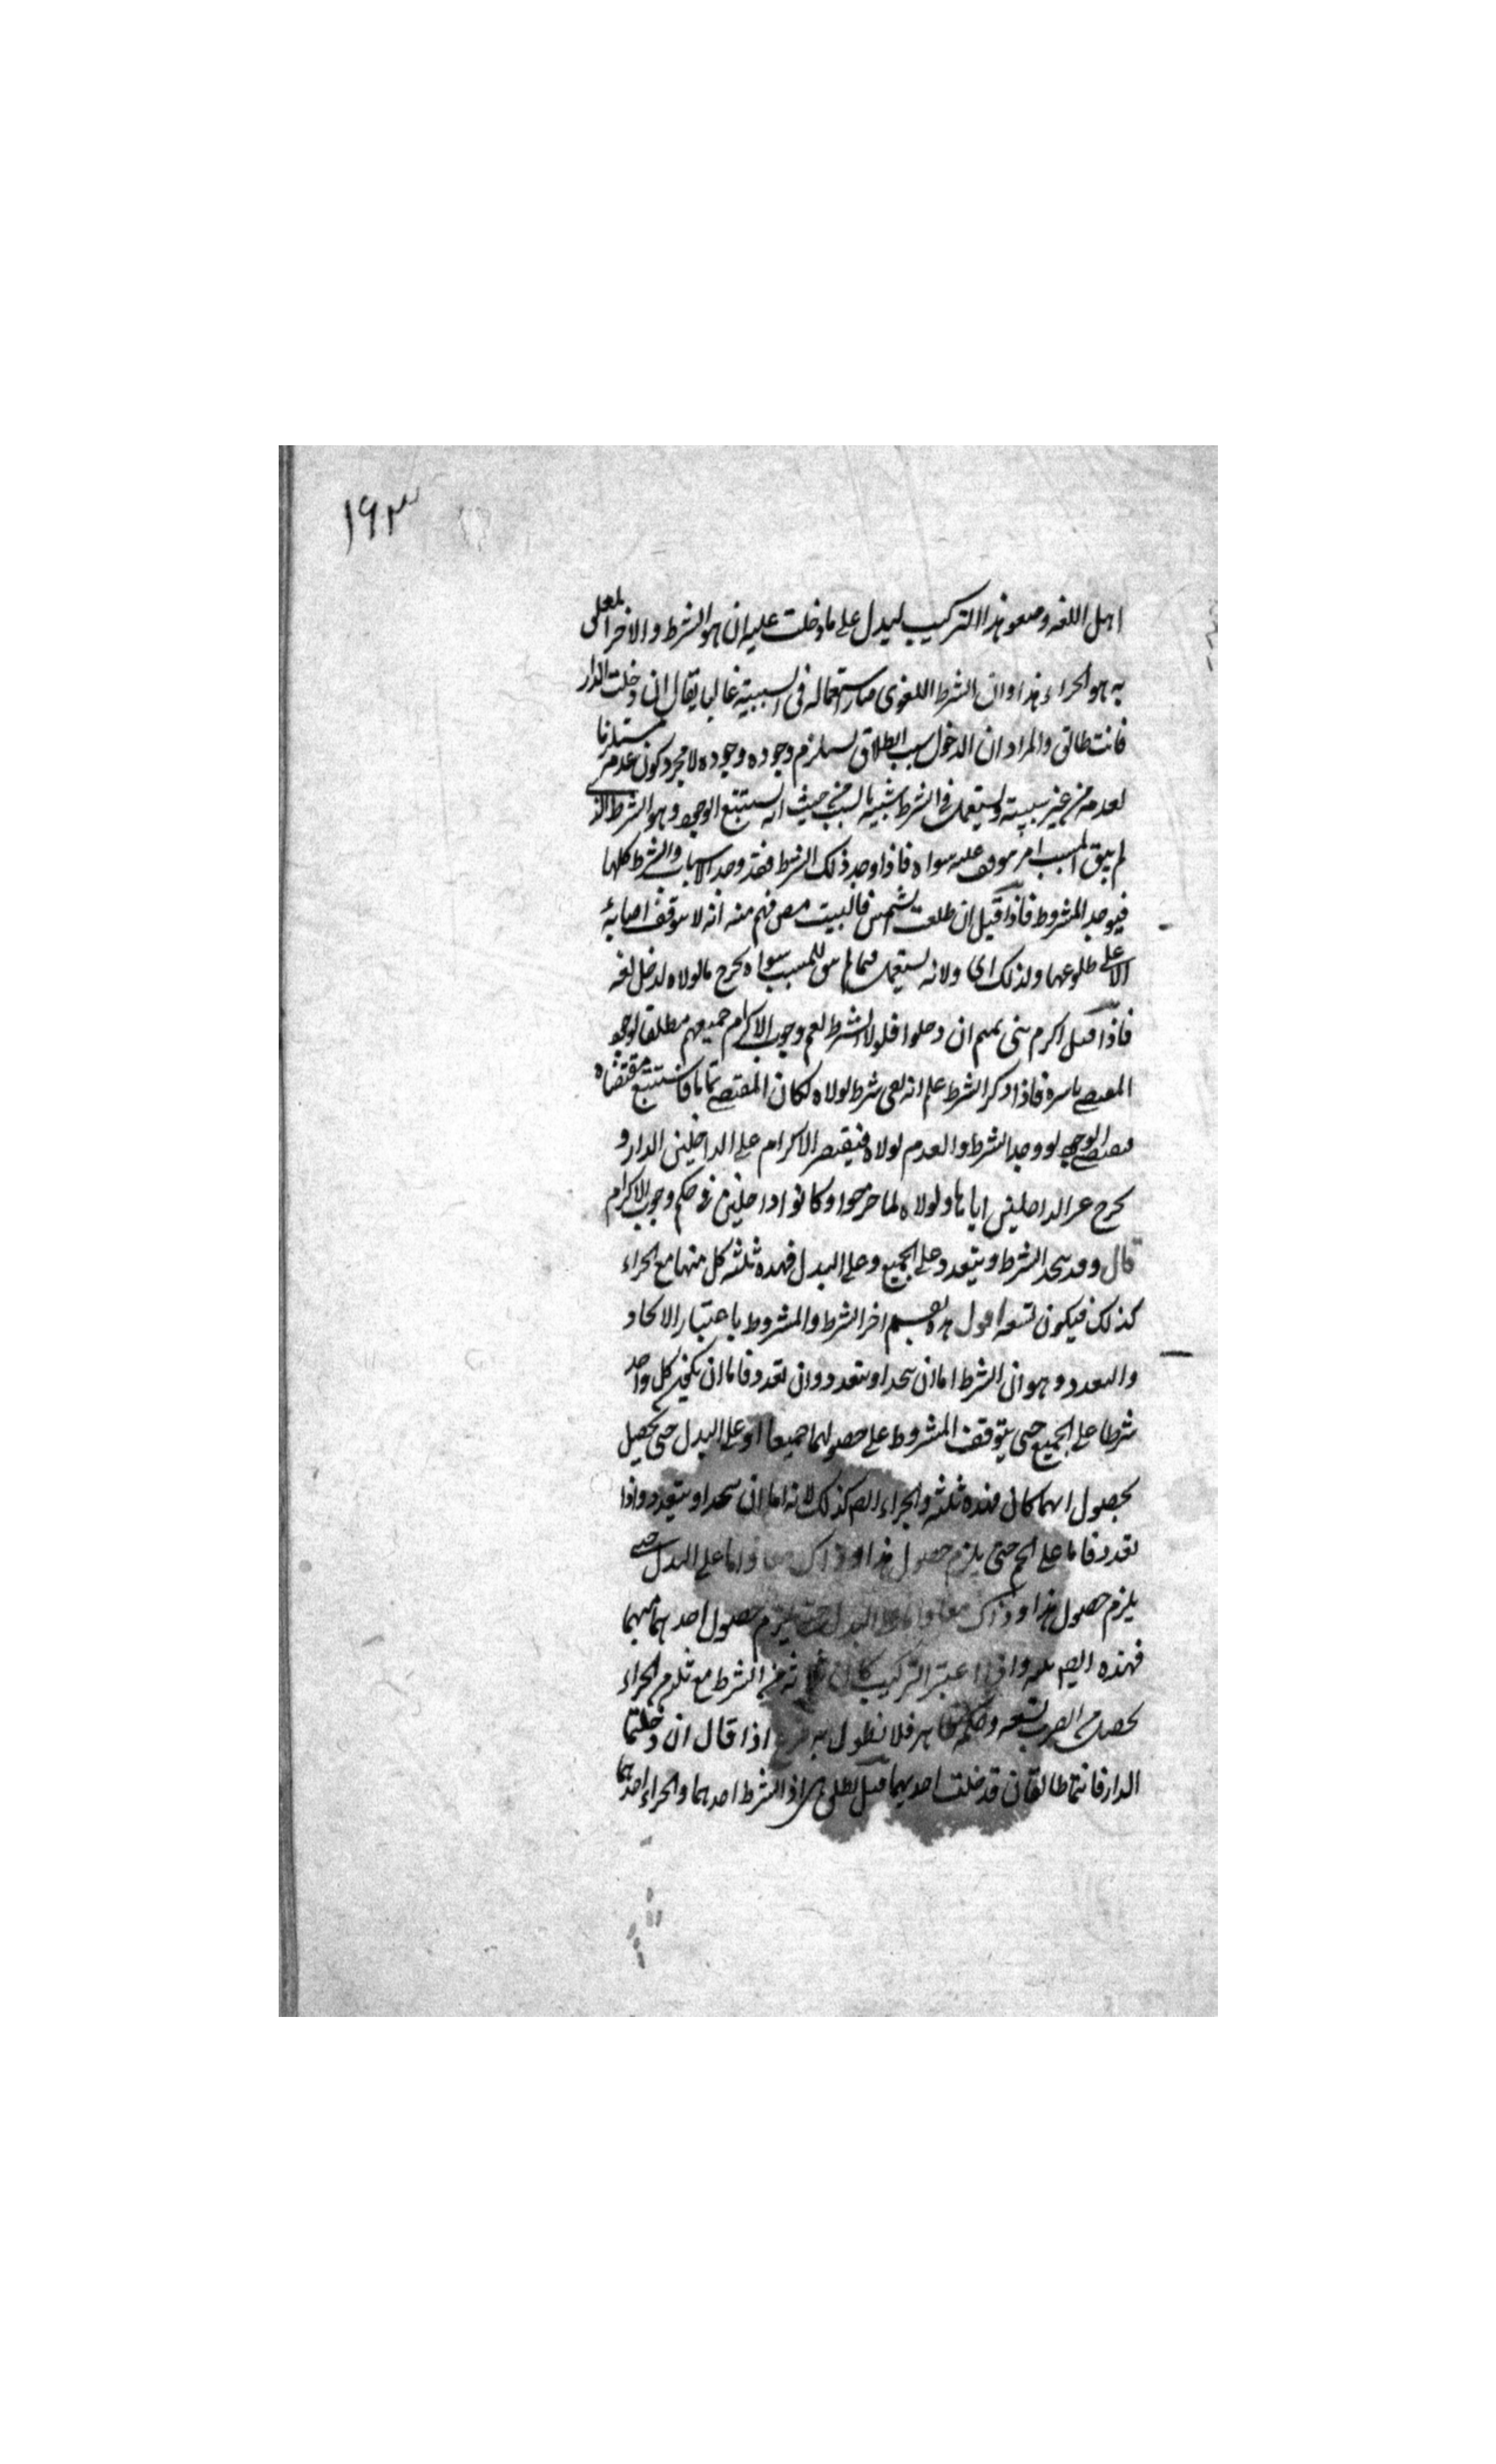 ١٦٣
اهل اللغه وضعو هذا التركيب ليدل على ما دخلت عليه ان هو الشرط والاخر المعلى
به هو الجراء هذا وان الشرط اللغوى صار استعماله فى السببيه غالبا يقال ان دخلت الدار
فانت طالق والمراد ان الدخول سبب الطلاق يستلزم وجوده وجوده لا مجرد كون عدمه مستلزما
لعدمه من غير سببيته ويستعمل فى الشرط شبيه بالسبب من حيث انه يستتبع الوجود وهو الشرط الذ
لم يبق المسبب امر يتوقف عليه سواه فاذا وجد ذلك الشرط فقد وجد الاسباب والشرط كلها
فيوجد المشروط فاذا قيل ان طلعت الشمس فالبيت مضى فهم منه انه لا يتوقف اصابة
الا على طلوعها ولذلك اى ولانه يستعمل فيما لم يبق للمسبب سواه يخرج ما لولاه لدخل لغه
فاذا قيل اكرم بنى تميم ان دخلوا فلولا الشرط لعم وجوب الاكرام جميعهم مطلقا لوجود
المقتضى باسره فاذا ذكر الشرط علم انه بقى شرط لولاه لكان المقتضى تاما فاستتبع مقتضاه
مقتضى الوجود لو وجد الشرط والعدم لولاه فيقتصر الاكرام على الداخلين الدار و
يخرج غير الداخلين اياها ولولاه لما خرجوا وكانوا داخلين فى حكم وجوب الاكرام
قال وقد يتحد الشرط ويتعدد على الجميع وعلى البدل فهذه ثلثه كل منها مع الجراء
كذلك فيكون تسعه اقول هذه تقسيم اخر الشرط والمشروط باعتبار الاتحاد
والتعدد وهو ان الشرط اما ان يتحد او يتعدد وان تعدد فاما ان يكون كل واحد
شرطا على الجميع حتى يتوقف المشروط على حصولهما جميعا او على البدل حتى يحصل
بحصول ايهما كان فهذه ثلثه والجراء ايضا كذلك لانه اما ان يتحد او يتعدد واذا
تعدد فاما على الجمع حتى يلزم حصول هذا وذاك معا واما على البدل حتى
يلزم حصول هذا وذاك معا واما على البدل حتى يلزم حصول احدهما مبهما
فهذه ايضا ثلثه واذا اعتبر التركيب كان ثلاثه من الشرط مع ثلثه من الجراء
يحصل من الضرب تسعه وحكمها ظاهر فلا نطول به اذا قال ان دخلتما
الدار فانتما طالقان فدخلت احديهما قيل تطلق هى اذ الشرط احدهما والجراء احدهما